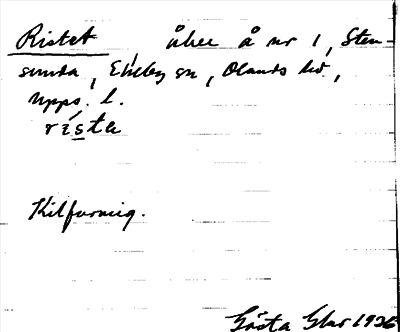 Ristet, åker å nr 1, Sten-
sunda, Ekeby sn, Olands hd,
Upps. l.
rísta
Kilformig.
Gösta 1936